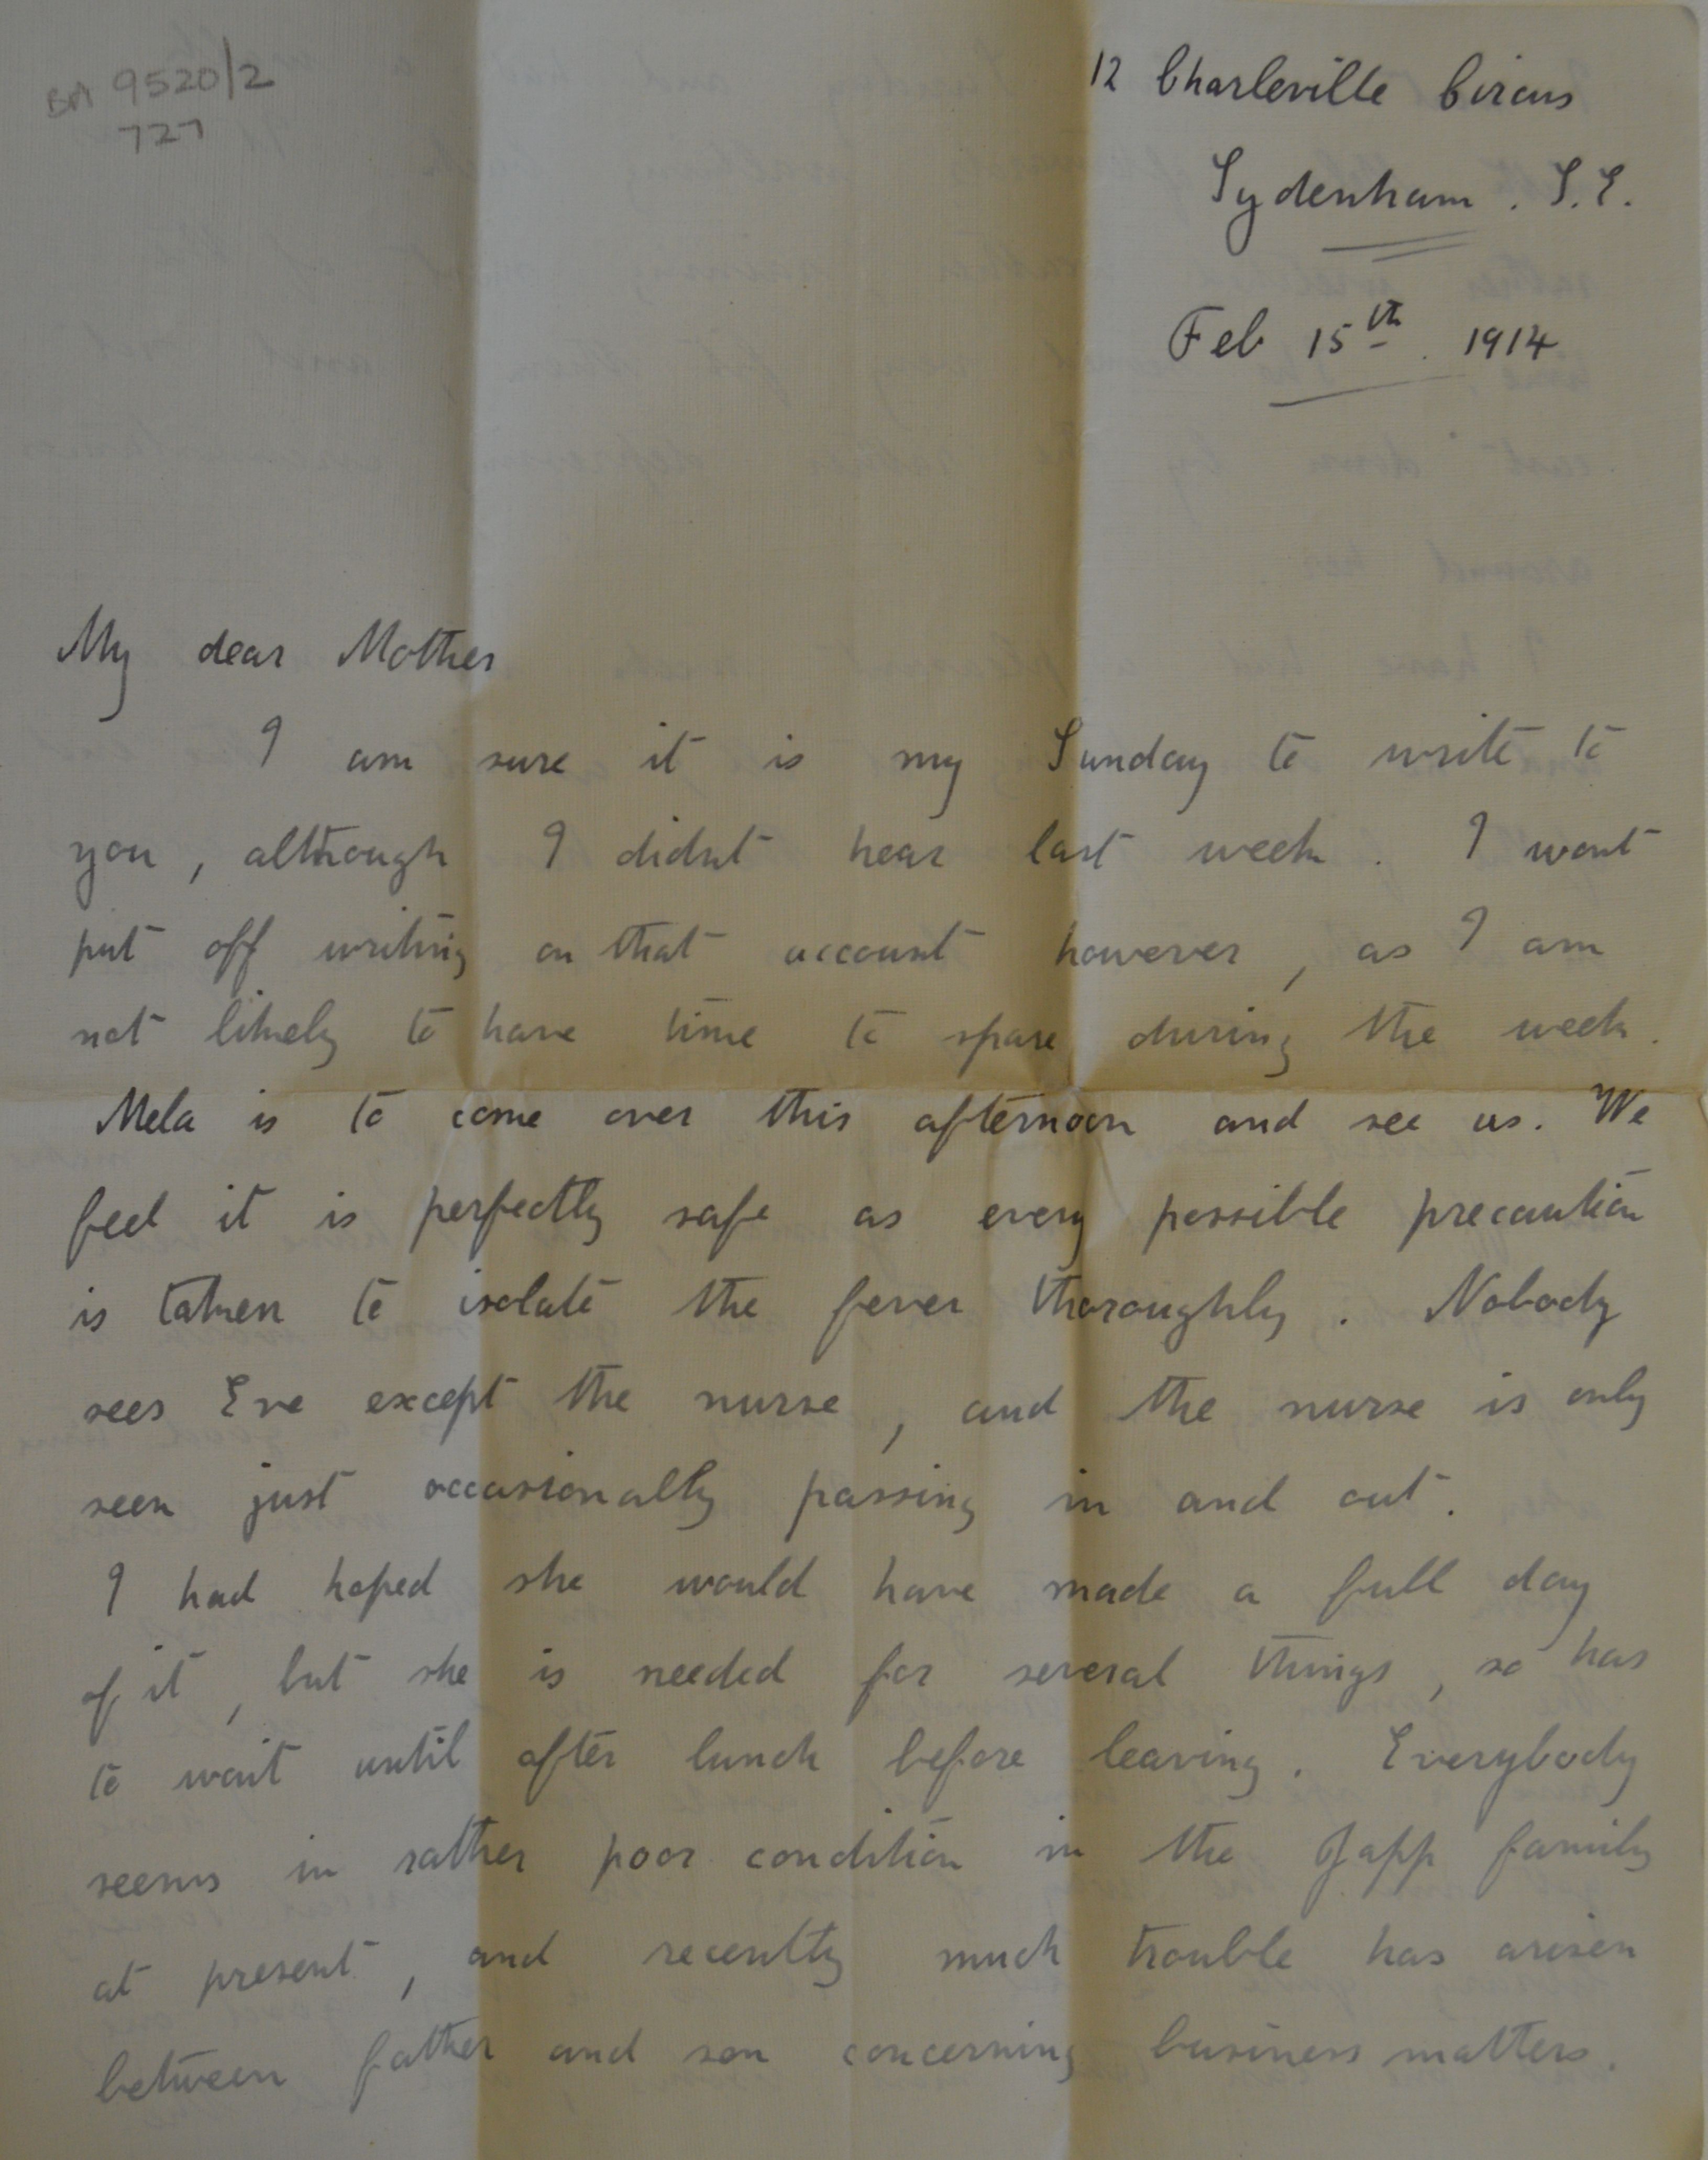 BM 9520/2
727
12 Charleville Circus
Sydenham . S.E.
Feb 15th . 1914
My dear Mother
I am sure it is my Sunday to write to
you , although I didnt hear last week . I wont
put off writing on that account however , as I am
not likely to have time to spare during the week .
Mela is to come over this afternoon and see us. We
feel it is perfectly safe as every possible precaution
is taken to isolate the fever thoroughly . Nobody
sees Eve except the nurse , and the nurse is only
seen just occasionally passing in and out .
I had hoped she would have made a full day
of it , but she is needed for several things , so has
to wait until after lunch before leaving . Everybody
seems in rather poor condition in the Japp family
at present , and recently much trouble has arisen
between father and son concerning business matters .